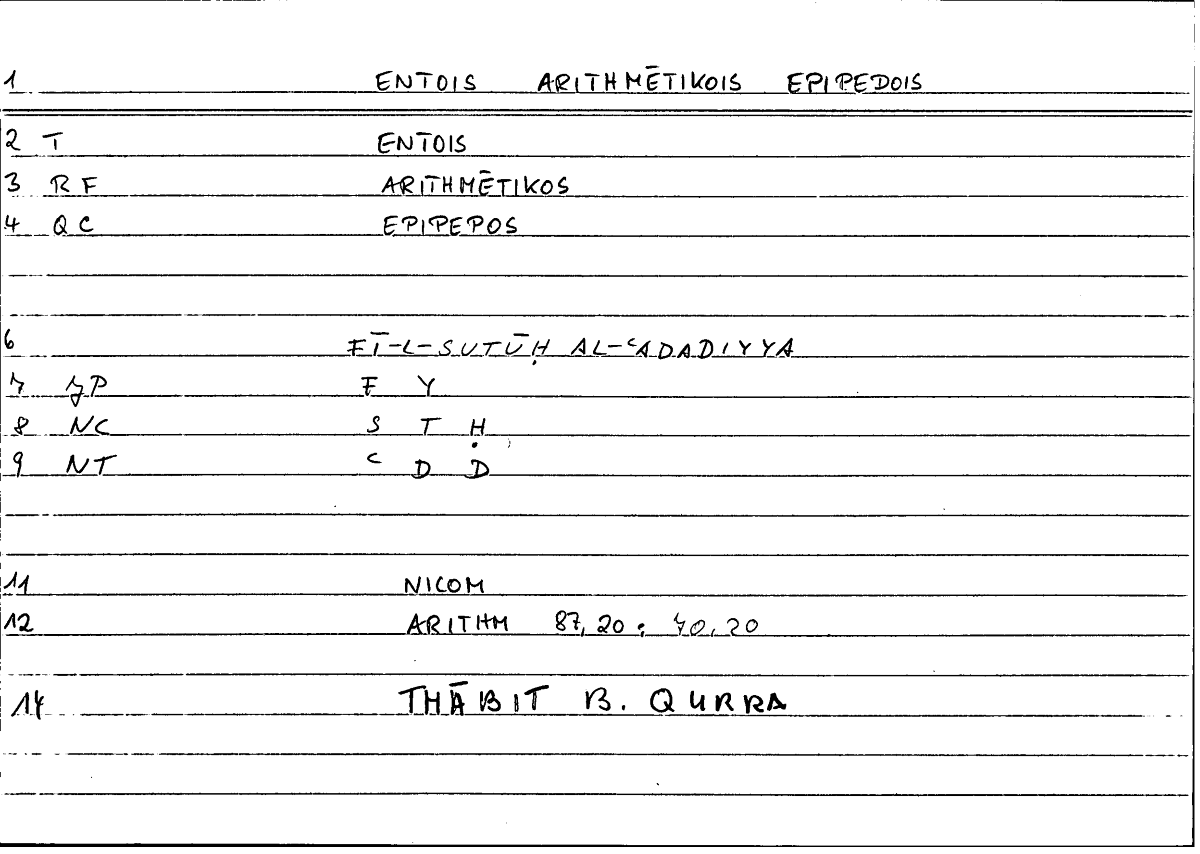 1 ENTOIS ARITHMĒTIKOIS EPIPEDOIS
2 T ENTOIS
3 RF ARITHMĒTIKOS
4 QC EPIPEPOS
6 FĪ-L-SUTŪḤ AL-ʿADADIYYA
7 JP F Y
8 NC S T Ḥ
9 NT ʿ D D
11 NICOM
12 ARITHM 87,20 : 70,20
14 THĀBIT B. QURRA